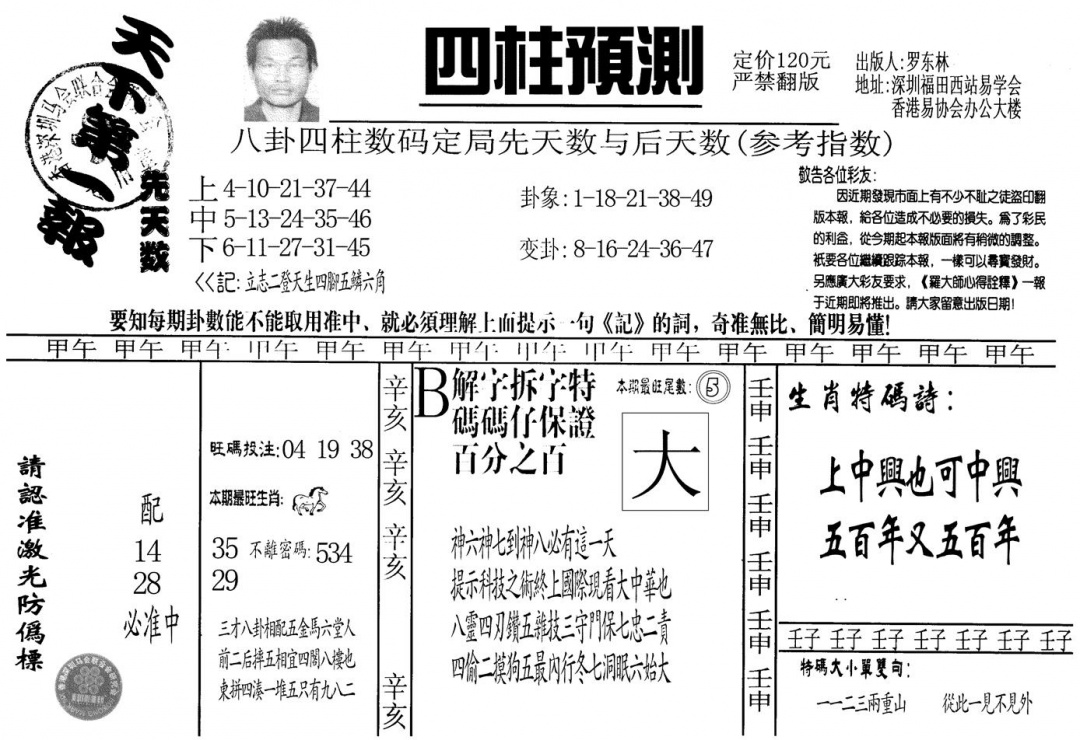 天下第一報
四柱預測
定价120元
严禁翻版
出版人:罗东林
地址:深圳福田西站易学会
香港易协会办公大楼
八卦四柱数码定局先天数与后天数(参考指数)
先天数
上 4-10-21-37-44
中 5-13-24-35-46
下 6-11-27-31-45
<<記:立志二登天生四腳五鱗六角
卦象:1-18-21-38-49
变卦:8-16-24-36-47
敬告各位彩友:
因近期發現市面上有不少不耻之徒盜印翻
版本報,給各位造成不必要的損失。爲了彩民
的利益,從今期起本報版面將有稍微的調整。
衹要各位繼續跟踪本報,一樣可以尋寶發財。
另應廣大彩友要求,《羅大師心得詮釋》一報
于近期即將推出。請大家留意出版日期!
要知每期卦數能不能取用准中、就必須理解上面提示一句《記》的詞,奇准無比、簡明易懂!
甲午 甲午 甲午 甲午 甲午 甲午 甲午 甲午 甲午 甲午 甲午 甲午 甲午 甲午 甲午
請認准激光防僞標
配
14
28
必准中
旺碼投注:04 19 38
本期最旺生肖:
35 不離密碼:534
29
三才八卦相配五金馬六堂人
前二后摔五相宜四閣八樓也
東拼四湊一堆五只有九八二
辛亥
辛亥
辛亥
辛亥
B
解字拆字特
碼碼仔保證
百分之百
本期最旺尾數:5
大
神六神七到神八必有這一天
提示科技之術終上國際現看大中華也
八靈四刃鑽五雜技三守門保七忠二責
四偷二摸狗五最內行冬七洞眠六始大
壬申
壬申
壬申
壬申
壬申
壬申
生肖特碼詩:
上中興也可中興
五百年又五百年
壬子 壬子 壬子 壬子 壬子 壬子 壬子
特碼大小單雙句:
一一二三兩重山 從此一見不見外